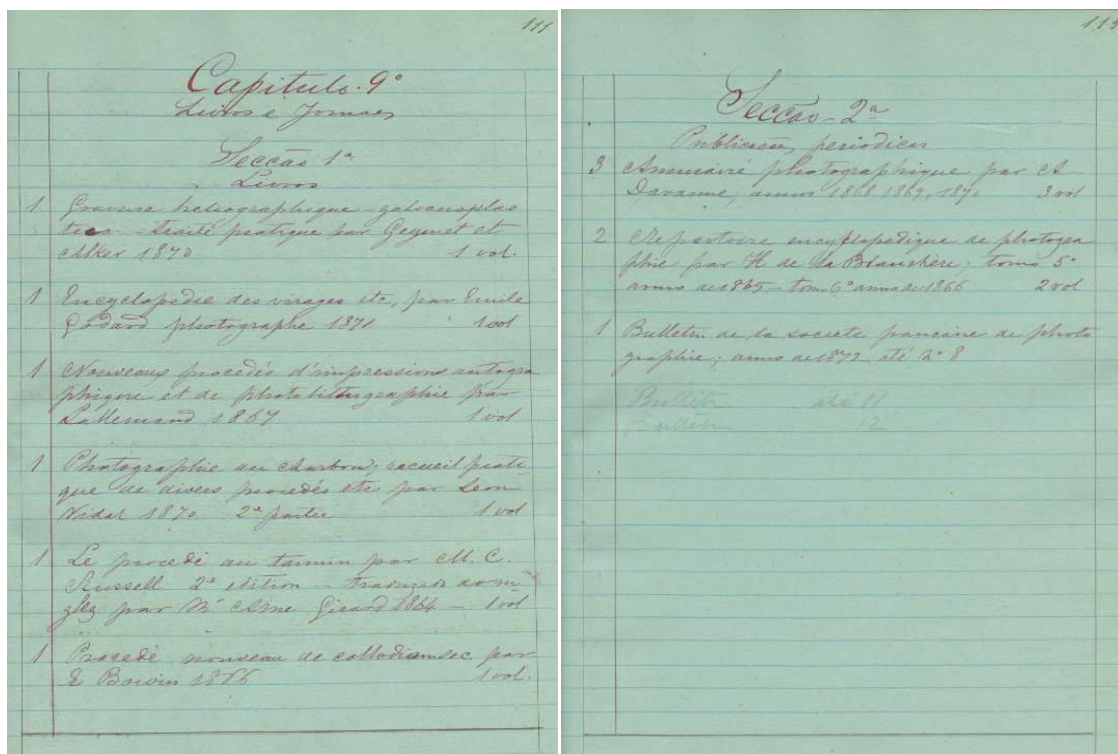 111
Capitulo. 9º
Livros e Jornaes
Secção 1ª
Livros
1 Gravure heliographique galvanoplas
tica - traité pratique par Geymet et
Alker 1870 1 vol.
1 Encyclopedie des virages etc, par Emile
Godard photographe 1871 1 vol
1 Nouveaux procedés d'impression autogra
phique et de photolithographie par
Lallemand 1867 1 vol
1 Photographie au charbon; recueil prati-
que de divers procedés etc par Leon
Vidal 1870 2ª partie 1 vol
1 Le procedé au tannin par M. C.
Russell 2ª edition - traduzido do in
glez par Mr Aimé Girard 1864 - 1 vol
1 Procedé nouveau de collodion sec par
E Boivin 1866 1 vol.
Secção - 2ª
Publicações periodicas
3 Annuaire photographique par A
Davanne, annos 1868, 1869, 1870 3 vol
2 Repertoire encyclopedique de photogra
phie par H de la Blanchère; tomo 5º
annos de 1865 - tomo 6º annos de 1866 2 vol
1 Bulletin de la societe francaise de photo
graphie; anno de 1872 até nº 8
Bulletin até 11
Bulletin 12